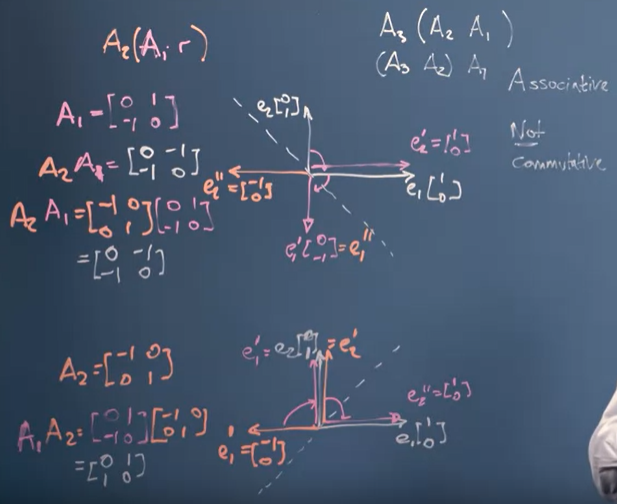 A₂(A₁ r)
A₃ (A₂ A₁)
(A₃ A₂) A₁
Associative
Not
commutative
A₁ = [0 1; -1 0]
A₂ A₁ = [0 -1; -1 0]
A₂ A₁ = [-1 0; 0 1][0 1; -1 0]
= [0 -1; -1 0]
e₂[0; 1]
e₂' = [1; 0]
e₂'' = [-1; 0]
e₁[1; 0]
e₁'[0; -1] = e₁''
A₂ = [-1 0; 0 1]
A₁ A₂ = [0 1; -1 0][-1 0; 0 1]
= [0 1; 1 0]
e₁'' = e₂[0; 1] = e₂'
e₂'' = [1; 0]
e₁' = [-1; 0]
e₁[1; 0]